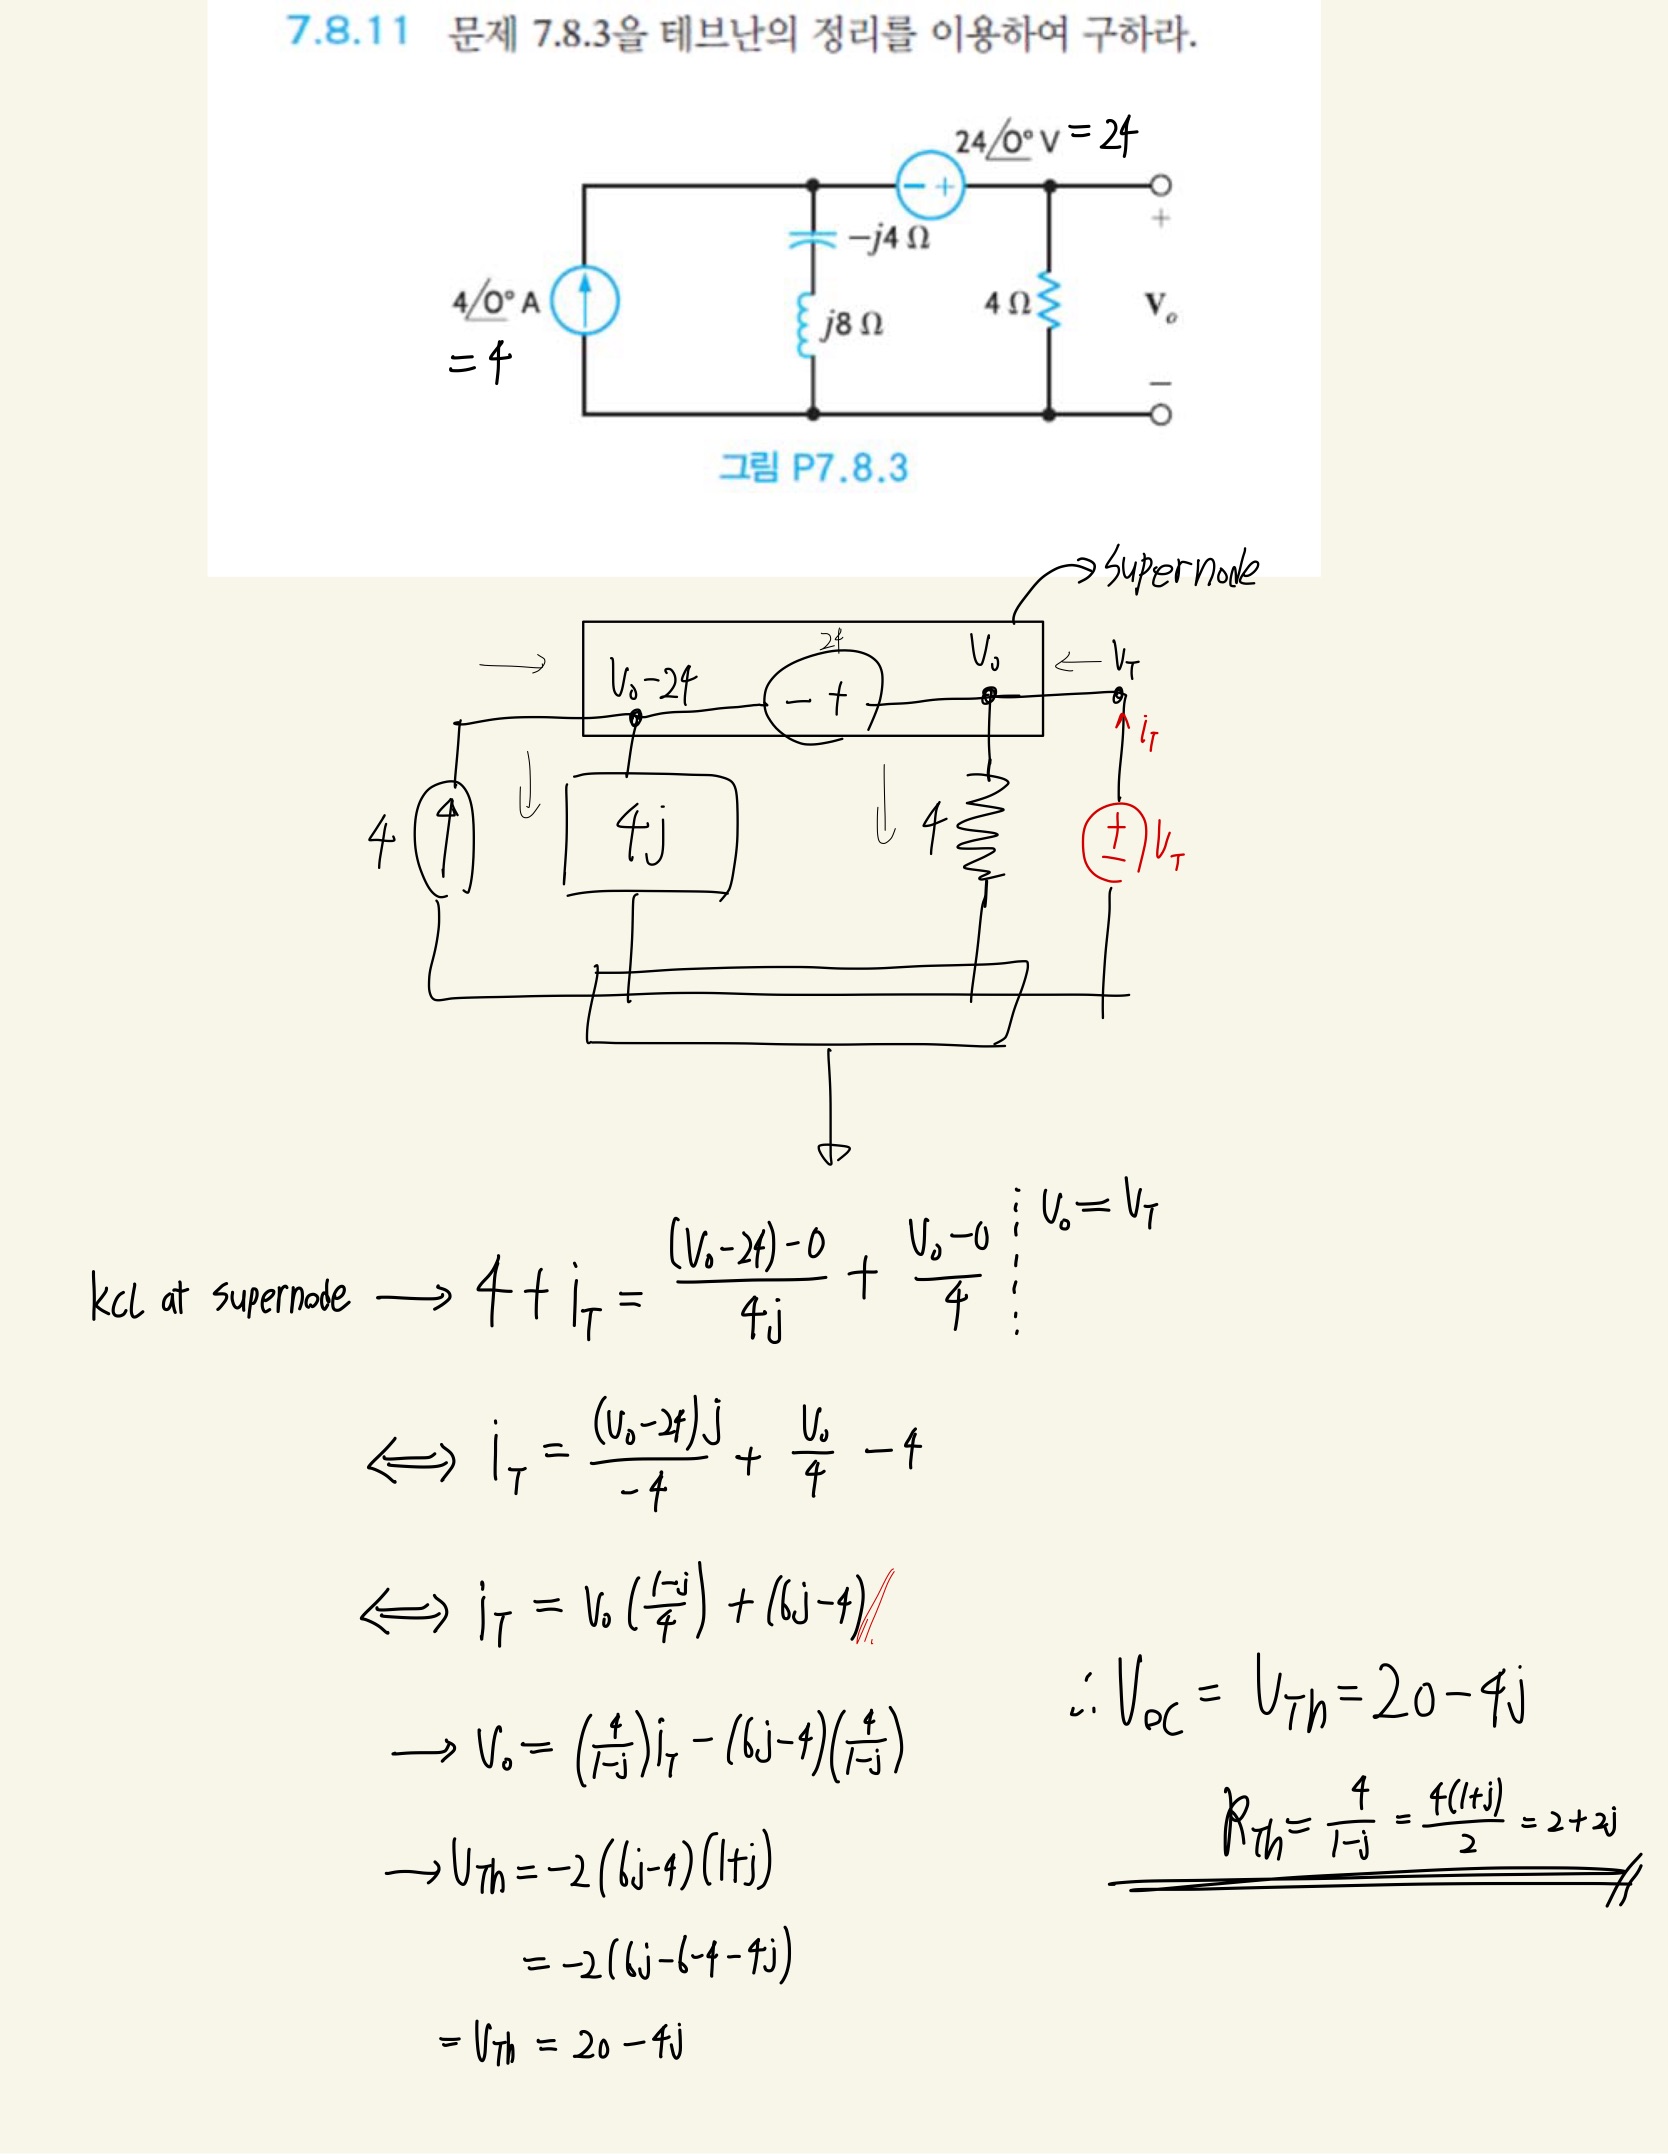 7.8.11 문제 7.8.3을 테브난의 정리를 이용하여 구하라.
24/0° V = 24
- +
+
-j4 Ω
4/0° A
4 Ω
V_o
j8 Ω
= 4
-
그림 P7.8.3
supernode
24
V_0
V_T
V_0-24
- +
i_T
4
4j
4
+
-
V_T
V_0 = V_T
kcl at supernode → 4 + i_T = ((V_0-24)-0)/4j + (V_0-0)/4
⇔ i_T = (V_0-24)j/-4 + V_0/4 - 4
⇔ i_T = V_0 ((1-j)/4) + (6j-4)
→ V_0 = (4/(1-j)) i_T - (6j-4)(4/(1-j))
→ V_Th = -2(6j-4)(1+j)
= -2(6j-6-4-4j)
= V_Th = 20-4j
∴ V_OC = V_Th = 20-4j
R_Th = 4/(1-j) = 4(1+j)/2 = 2+2j